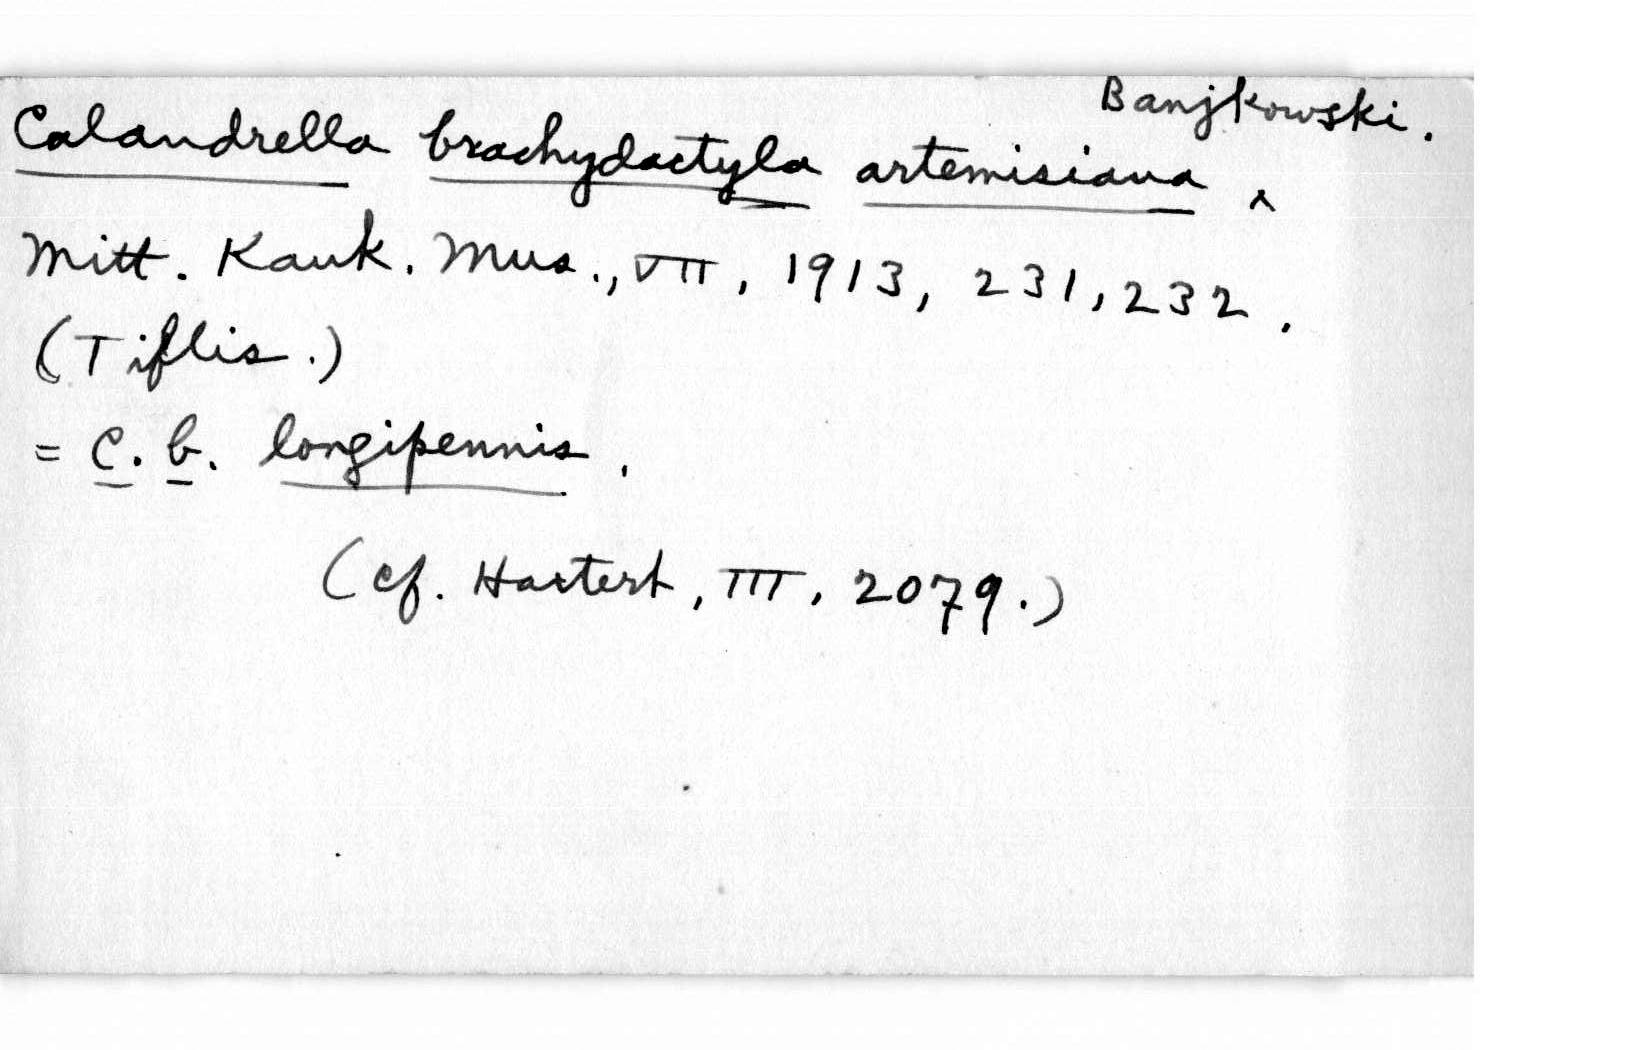 Calandrella brachydactyla artemisiana ^ Banjkowski.
Mitt. Kauk. Mus., VII, 1913, 231, 232.
(Tiflis.)
= C. b. longipennis.
(cf. Hartert, III, 2079.)